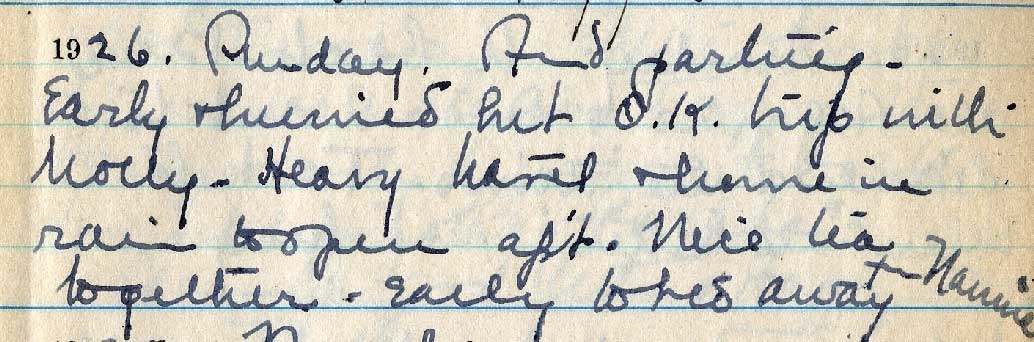 1926. Sunday. And parting -
Early & hurried but O.K. trip with
Molly - Heavy & home in
rain to open apt. Nice tea
together - Early to bed away
Nannie